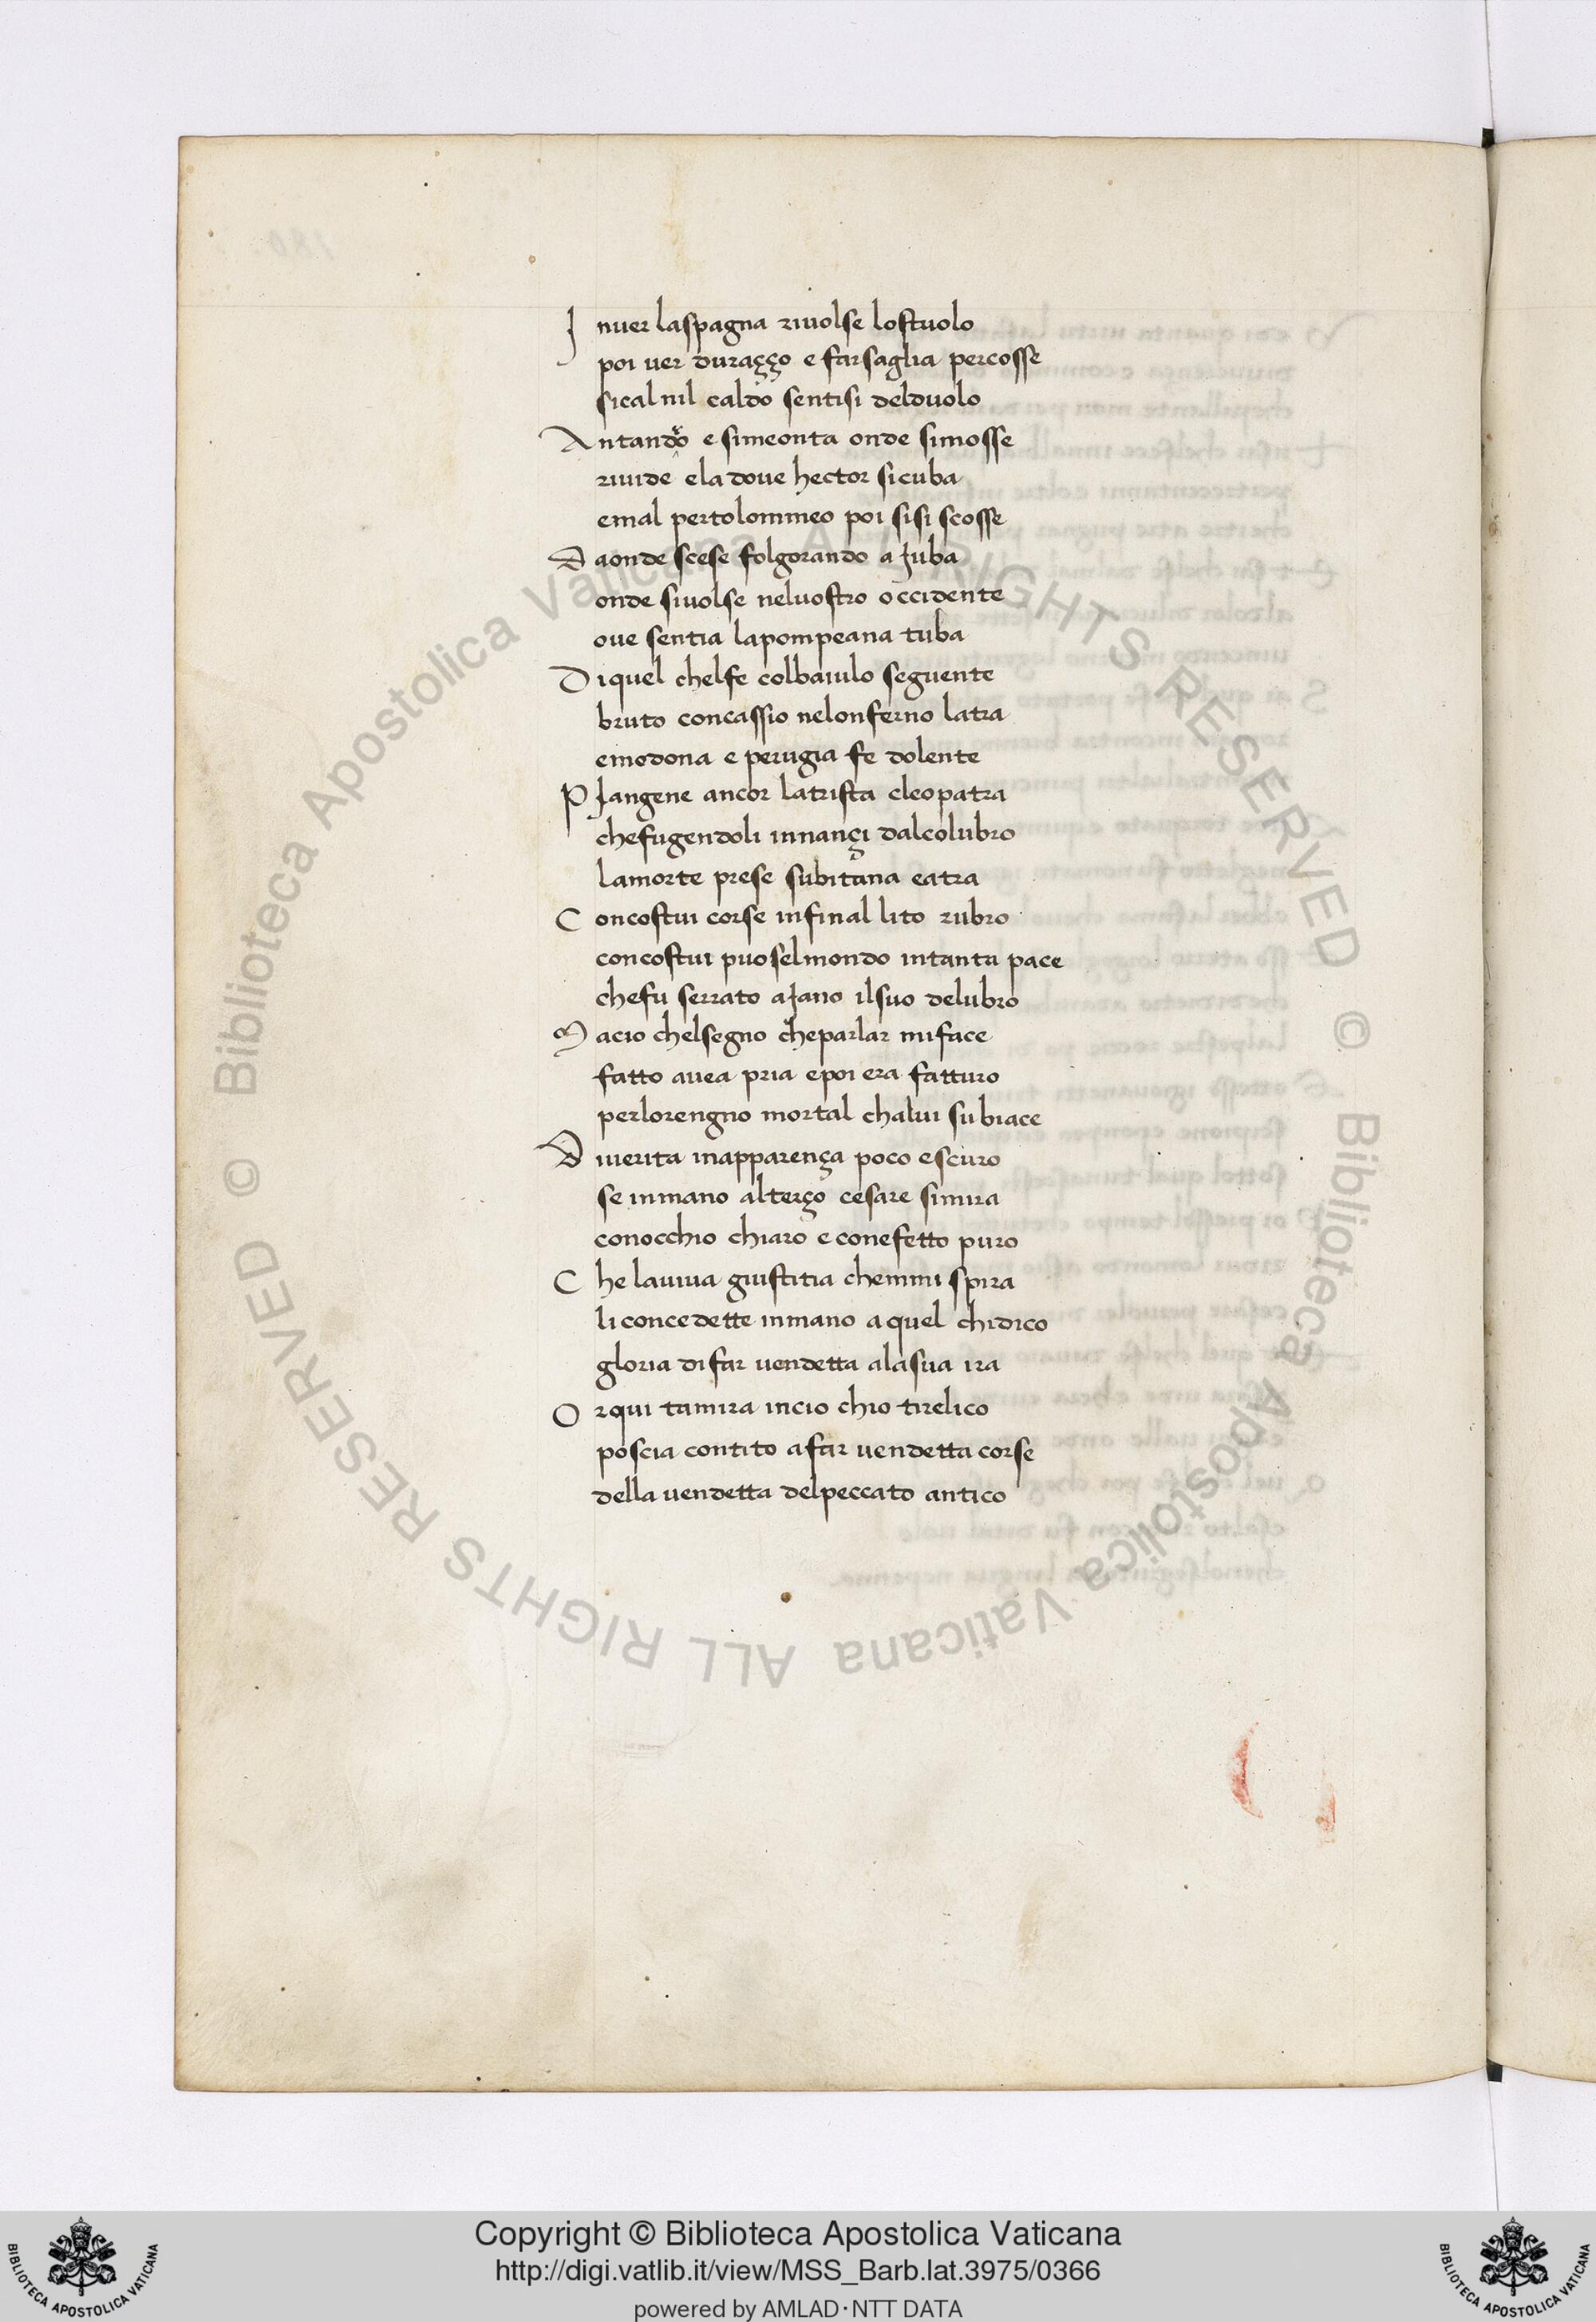 I nuer laspagna riuolse lostuolo
poi uer duraçço e farsaglia percosse
sical nil caldo sentisi delduolo
Antandro e simeonta onde simosse
riuide ela doue hector sicuba
emal pertolommeo poi sisi scosse
D aonde scese folgorando a Juba
onde siuolse neluostro occidente
oue sentia lapompeana tuba
D iquel chelfe colbaiulo seguente
bruto concassio nelonferno latra
emodona e perugia fe dolente
P Jangene ancor latrista cleopatra
chefugendoli innançi dalcolubro
lamorte prese subitana eatra
C oncostui corse infinal lito rubro
concostui puoselmondo intanta pace
chefu serrato aJano ilsuo delubro
M acio chelsegno cheparlar miface
fatto auea pria epoi era fatturo
perlorengno mortal chalui subiace
D iuerita inapparença poco escuro
se inmano alterço cesare simira
conocchio chiaro e conefetto puro
C he lauiua giustitia chemmi spira
li concedette inmano aquel chidico
gloria difar uendetta alasua ira
O rqui tamira incio chio tirelico
poscia contito afar uendetta corse
della uendetta delpeccato antico
© Biblioteca Apostolica Vaticana ALL RIGHTS RESERVED
© Biblioteca Apostolica Vaticana ALL RIGHTS RESERVED
BIBLIOTECA APOSTOLICA VATICANA
Copyright © Biblioteca Apostolica Vaticana
http://digi.vatlib.it/view/MSS_Barb.lat.3975/0366
powered by AMLAD·NTT DATA
BIBLIOTECA APOSTOLICA VATICANA